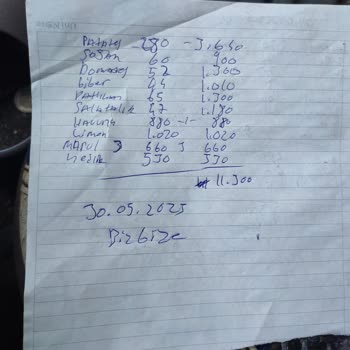 Patates 280 - 3.640
Soğan 60 900
Domates 52 1.300
Biber 44 1.010
Patlıcan 65 1.300
Salatalık 47 1.180
Havuna 880 -1- 880
Limon 1.020 1.020
MARUL 3 660 3 660
530 530
11.300
30.05.2025
Bizbize